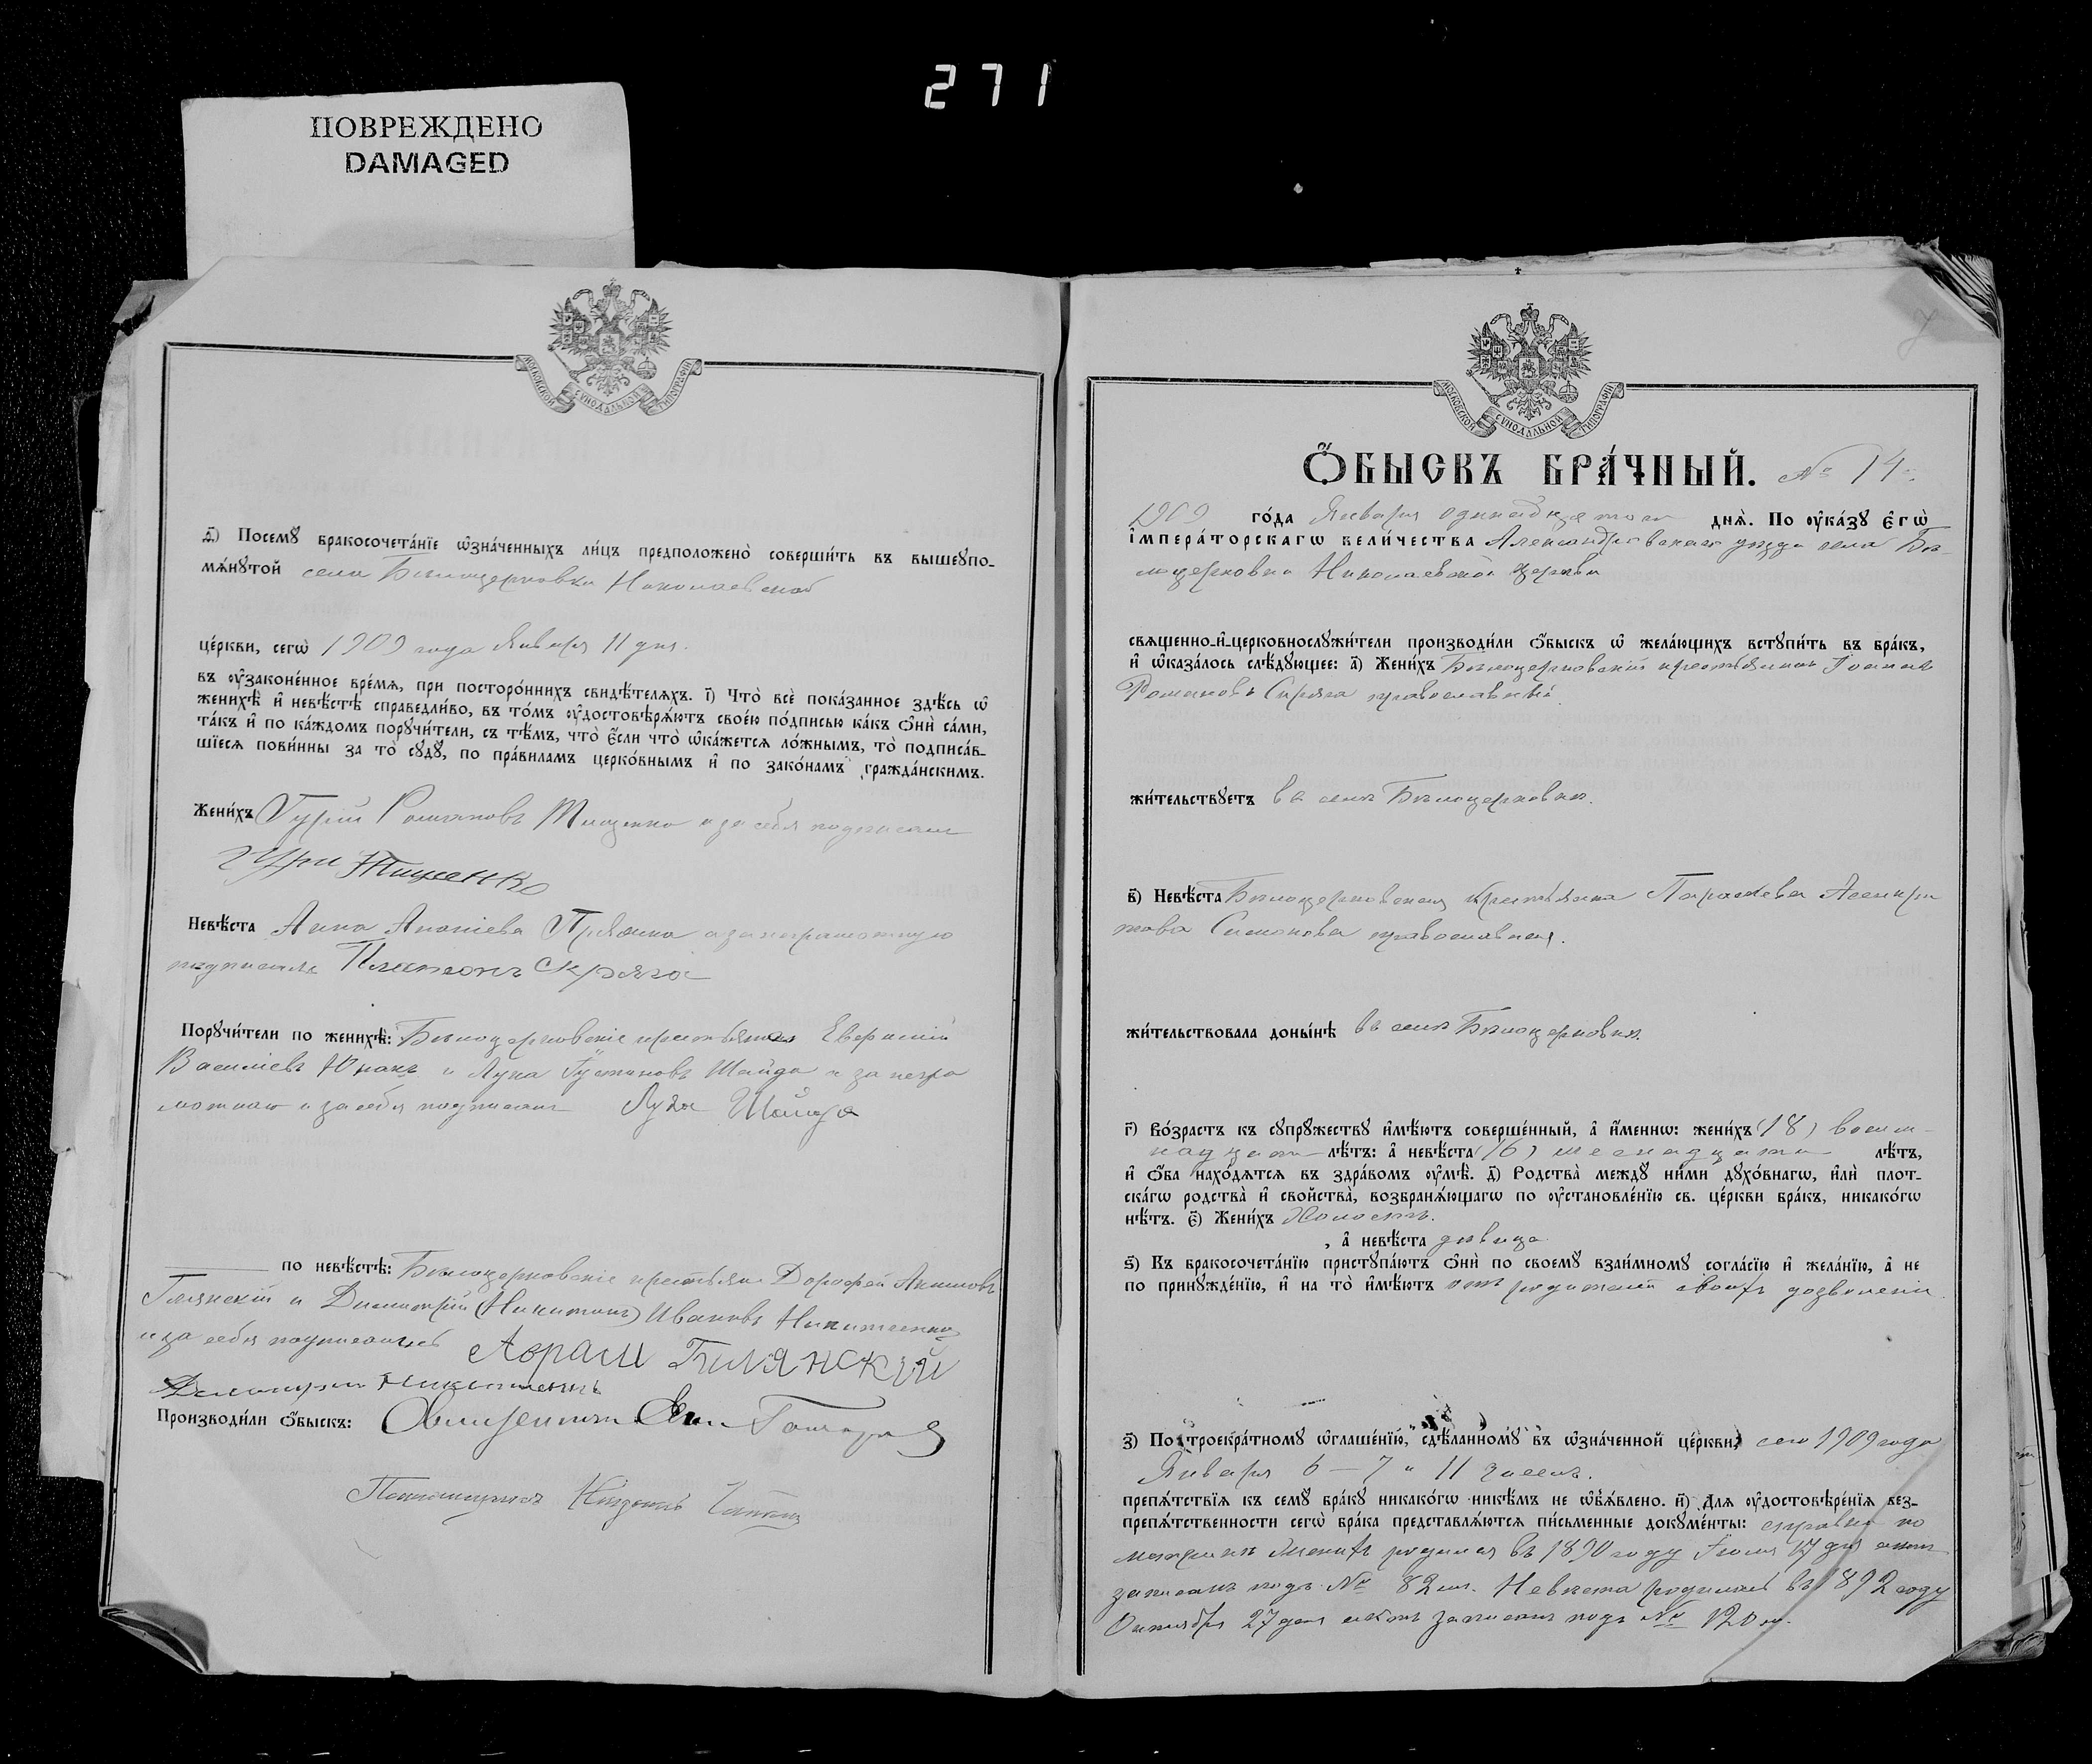 271
ПОВРЕЖДЕНО
DAMAGED
МОСКОВСКОЙ СѴНОДАЛЬНОЙ ТИПОГРАФІИ
д҃) Посемꙋ бракосочета́нїе ѡ҆зна́ченныхъ ли́цъ предположено̀ соверши́ть въ вышеꙋпо-
мѧ́нꙋтой села Бѣлоцерковки Николаевской
це́ркви, сегѡ̀ 1909 года Января 11 дня.
въ ᲂу҆зако́ненное вре́мѧ, при посторо́ннихъ свидѣ́телѧхъ. і҃) Что̀ всѐ пока́занное здѣ́сь ѡ҆
женихѣ̀ и҆ невѣ́стѣ справедли́во, въ то́мъ ᲂу҆достовѣрѧ́ютъ свое́ю по́дписью ка́къ ѻ҆нѝ са́ми,
та́къ и҆ по ка́ждомъ порꙋчи́тели, съ тѣ́мъ, что̀ є҆́сли что̀ ѡ҆ка́жетсѧ ло́жнымъ, то̀ подписа́в-
шїесѧ пови́нны за то̀ сꙋдꙋ̀, по пра́виламъ церко́внымъ и҆ по зако́намъ гражда́нскимъ.
Жени́хъ Гурій Романовъ Тищенко а за себя подписалъ
Гури Тищенко
Невѣ́ста Анна Ананіева а за неграмотную
подписалъ Платонъ Скряга
Порꙋчи́тели по женихѣ̀: Бѣлоцерковскіе крестьяне
Василіевъ Юнакъ и Лука Іустиновъ Шайда а за негра
мотнаго и за себя подписалъ Лука Шайда
по невѣ́стѣ: Бѣлоцерковскіе крестьяне Дорофей
и Димитрій (Никитинъ) Ивановъ Никитенко
и за себя подписались Аврам Билянский
Никитенко
Производи́ли ѻ҆́быскъ: Священникъ Гончаров
МОСКОВСКОЙ СѴНОДАЛЬНОЙ ТИПОГРАФІИ
Ѻ҆́БЫСКЪ БРА́ЧНЫЙ. № 14.
1909 го́да Января одинадцатого днѧ̀. По ᲂу҆ка́зꙋ є҆гѡ̀
і҆мпера́торскагѡ вели́чества Александровскаго уѣзда села Бѣ-
лоцерковки Николаевской церкви
свѧщенно-и҆-церковнослꙋжи́тели производи́ли ѻ҆́быскъ ѡ҆ жела́ющихъ встꙋпи́ть въ бра́къ,
и҆ ѡ҆каза́лось слѣ́дꙋющее: а҃) Жени́хъ Бѣлоцерковскій крестьянинъ Іоаннъ
Романовъ Скряга православный
жи́тельствꙋетъ въ селѣ Бѣлоцерковкѣ.
в҃) Невѣ́ста Бѣлоцерковская крестьянка Параскева Асинкри
това Симонова православная.
жи́тельствовала доны́нѣ въ селѣ Бѣлоцерковкѣ.
г҃) Во́зрастъ къ сꙋпрꙋ́жествꙋ и҆мѣ́ютъ соверше́нный, а҆ и҆́меннѡ: жени́хъ (18) восем-
надцать лѣ́тъ: а҆ невѣ́ста (16) шеснадцать лѣ́тъ,
и҆ ѻ҆́ба нахо́дѧтсѧ въ здра́вомъ ᲂу҆мѣ̀. д҃) Родства̀ междꙋ̀ ни́ми дꙋхо́внагѡ, и҆лѝ плот-
ска́гѡ родства̀ и҆ сво́йства, возбранѧ́ющагѡ по ᲂу҆становле́нїю св. це́ркви бра́къ, никако́гѡ
нѣ́тъ. є҃) Жени́хъ Холостъ.
, а҆ невѣ́ста дѣвица.
ѕ҃) Къ бракосочета́нїю пристꙋпа́ютъ ѻ҆нѝ по своемꙋ̀ взаи́мномꙋ согла́сїю и҆ жела́нїю, а҆ не
по принꙋжде́нїю, и҆ на то̀ и҆мѣ́ютъ отъ родителей своихъ дозволеніе
з҃) По троекра́тномꙋ ѡ҆глаше́нїю, сдѣ́ланномꙋ въ ѡ҆зна́ченной це́ркви, сего 1909 года
Января 6 – 7 и 11 чиселъ.
препѧ́тствїѧ къ семꙋ̀ бра́кꙋ никако́гѡ никѣ́мъ не ѡ҆б̾ѧ́влено. и҃) Длѧ ᲂу҆достовѣре́нїѧ без-
препѧ́тственности сегѡ̀ бра́ка представлѧ́ютсѧ пи́сьменные докꙋме́нты: справка по
метрикѣ Женихъ родился въ 1890 году Іюля 17 дня актъ
записанъ подъ № 82 м. Невѣста родилась въ 1892 году
Октября 27 дня актъ записанъ подъ №